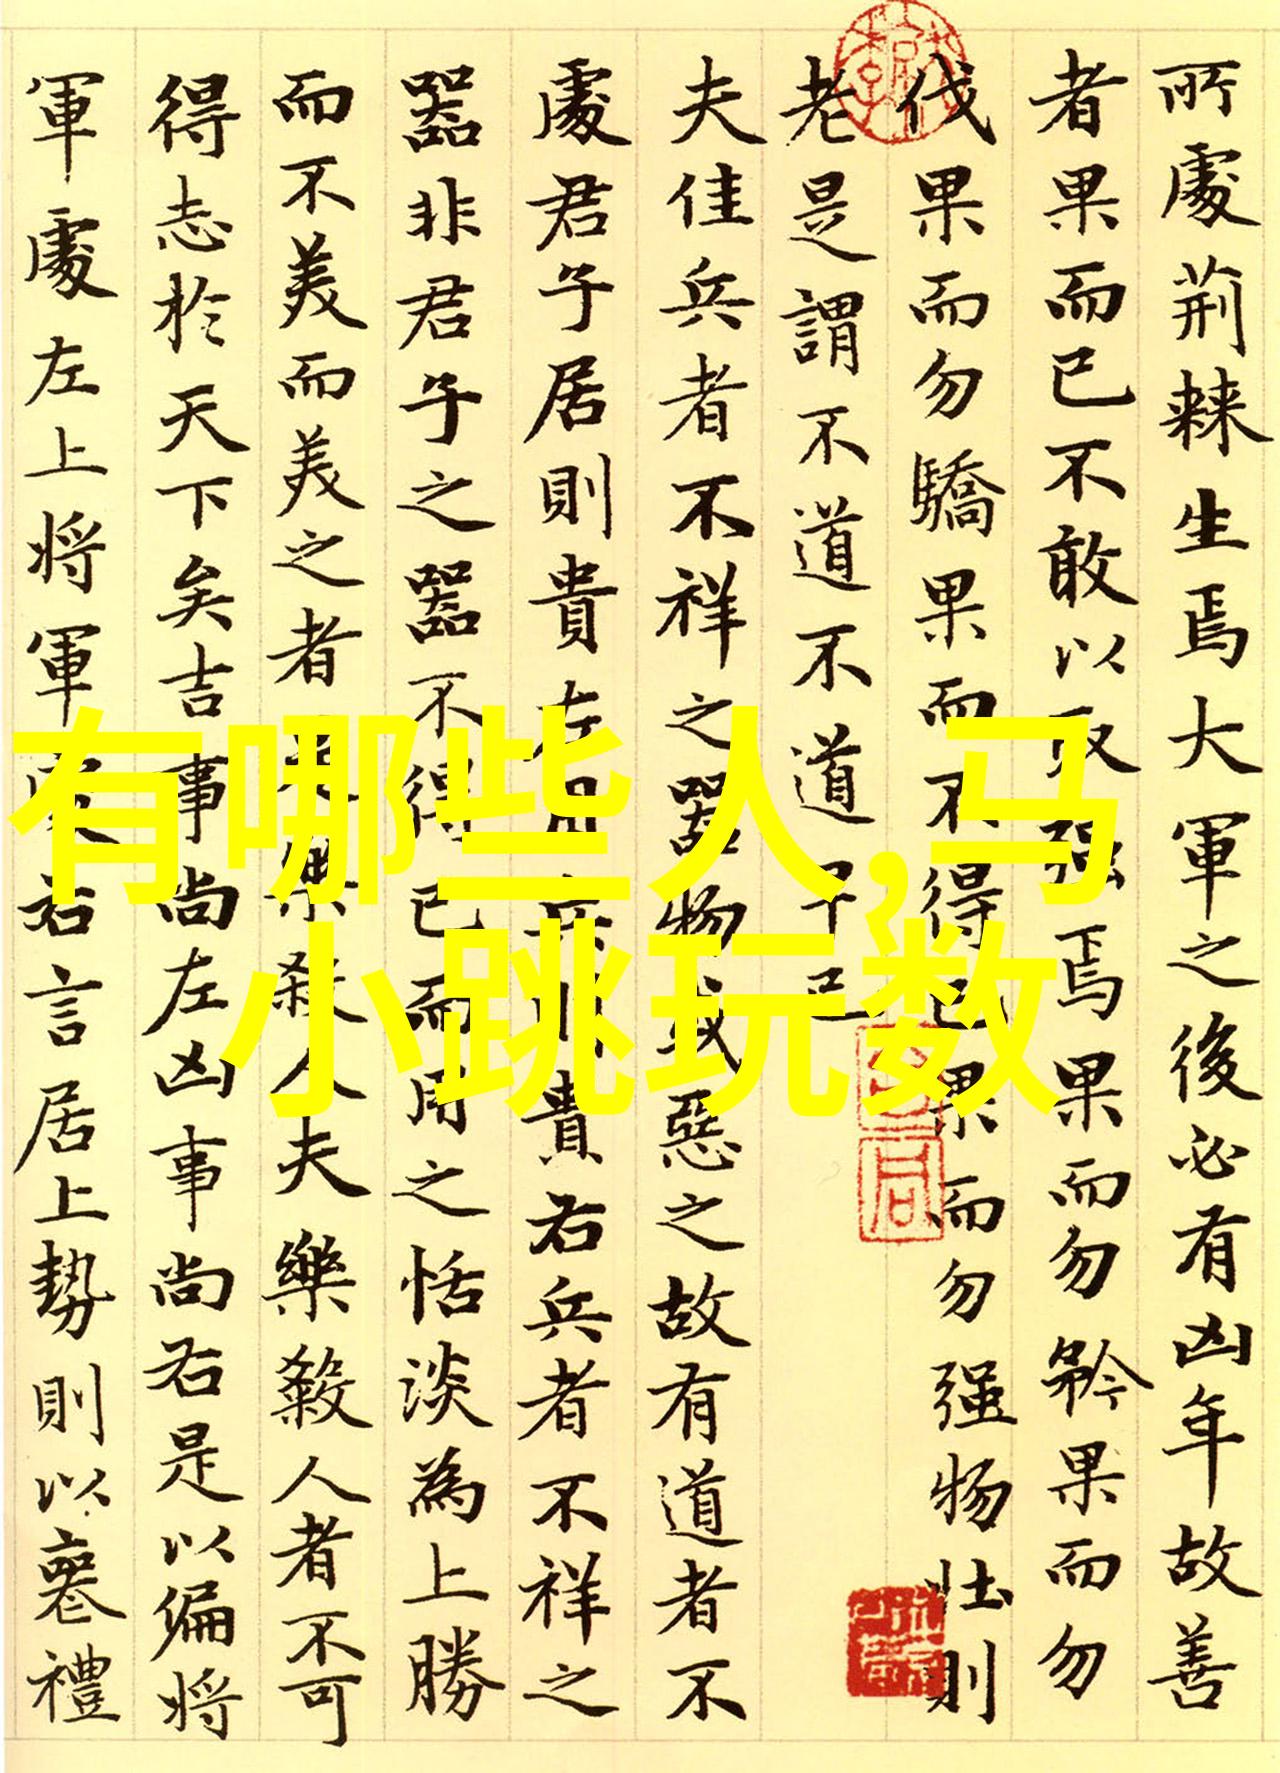 所處荊棘生焉大軍之後必有凶年故善
者果而已不敢以取强焉果而勿矜果而勿
伐果而勿驕果而不得已果而勿强物壮則
老是謂不道不道早已
夫佳兵者不祥之器物或惡之故有道者不
處君子居則貴左用兵則貴右兵者不祥之
器非君子之器不得已而用之恬淡為上勝
而不美而美之者是樂殺人夫樂殺人者不可
得志於天下矣吉事尚左凶事尚右是以偏將
軍處左上將軍處右言居上勢則以喪禮
有哪些人,马
小跳玩数